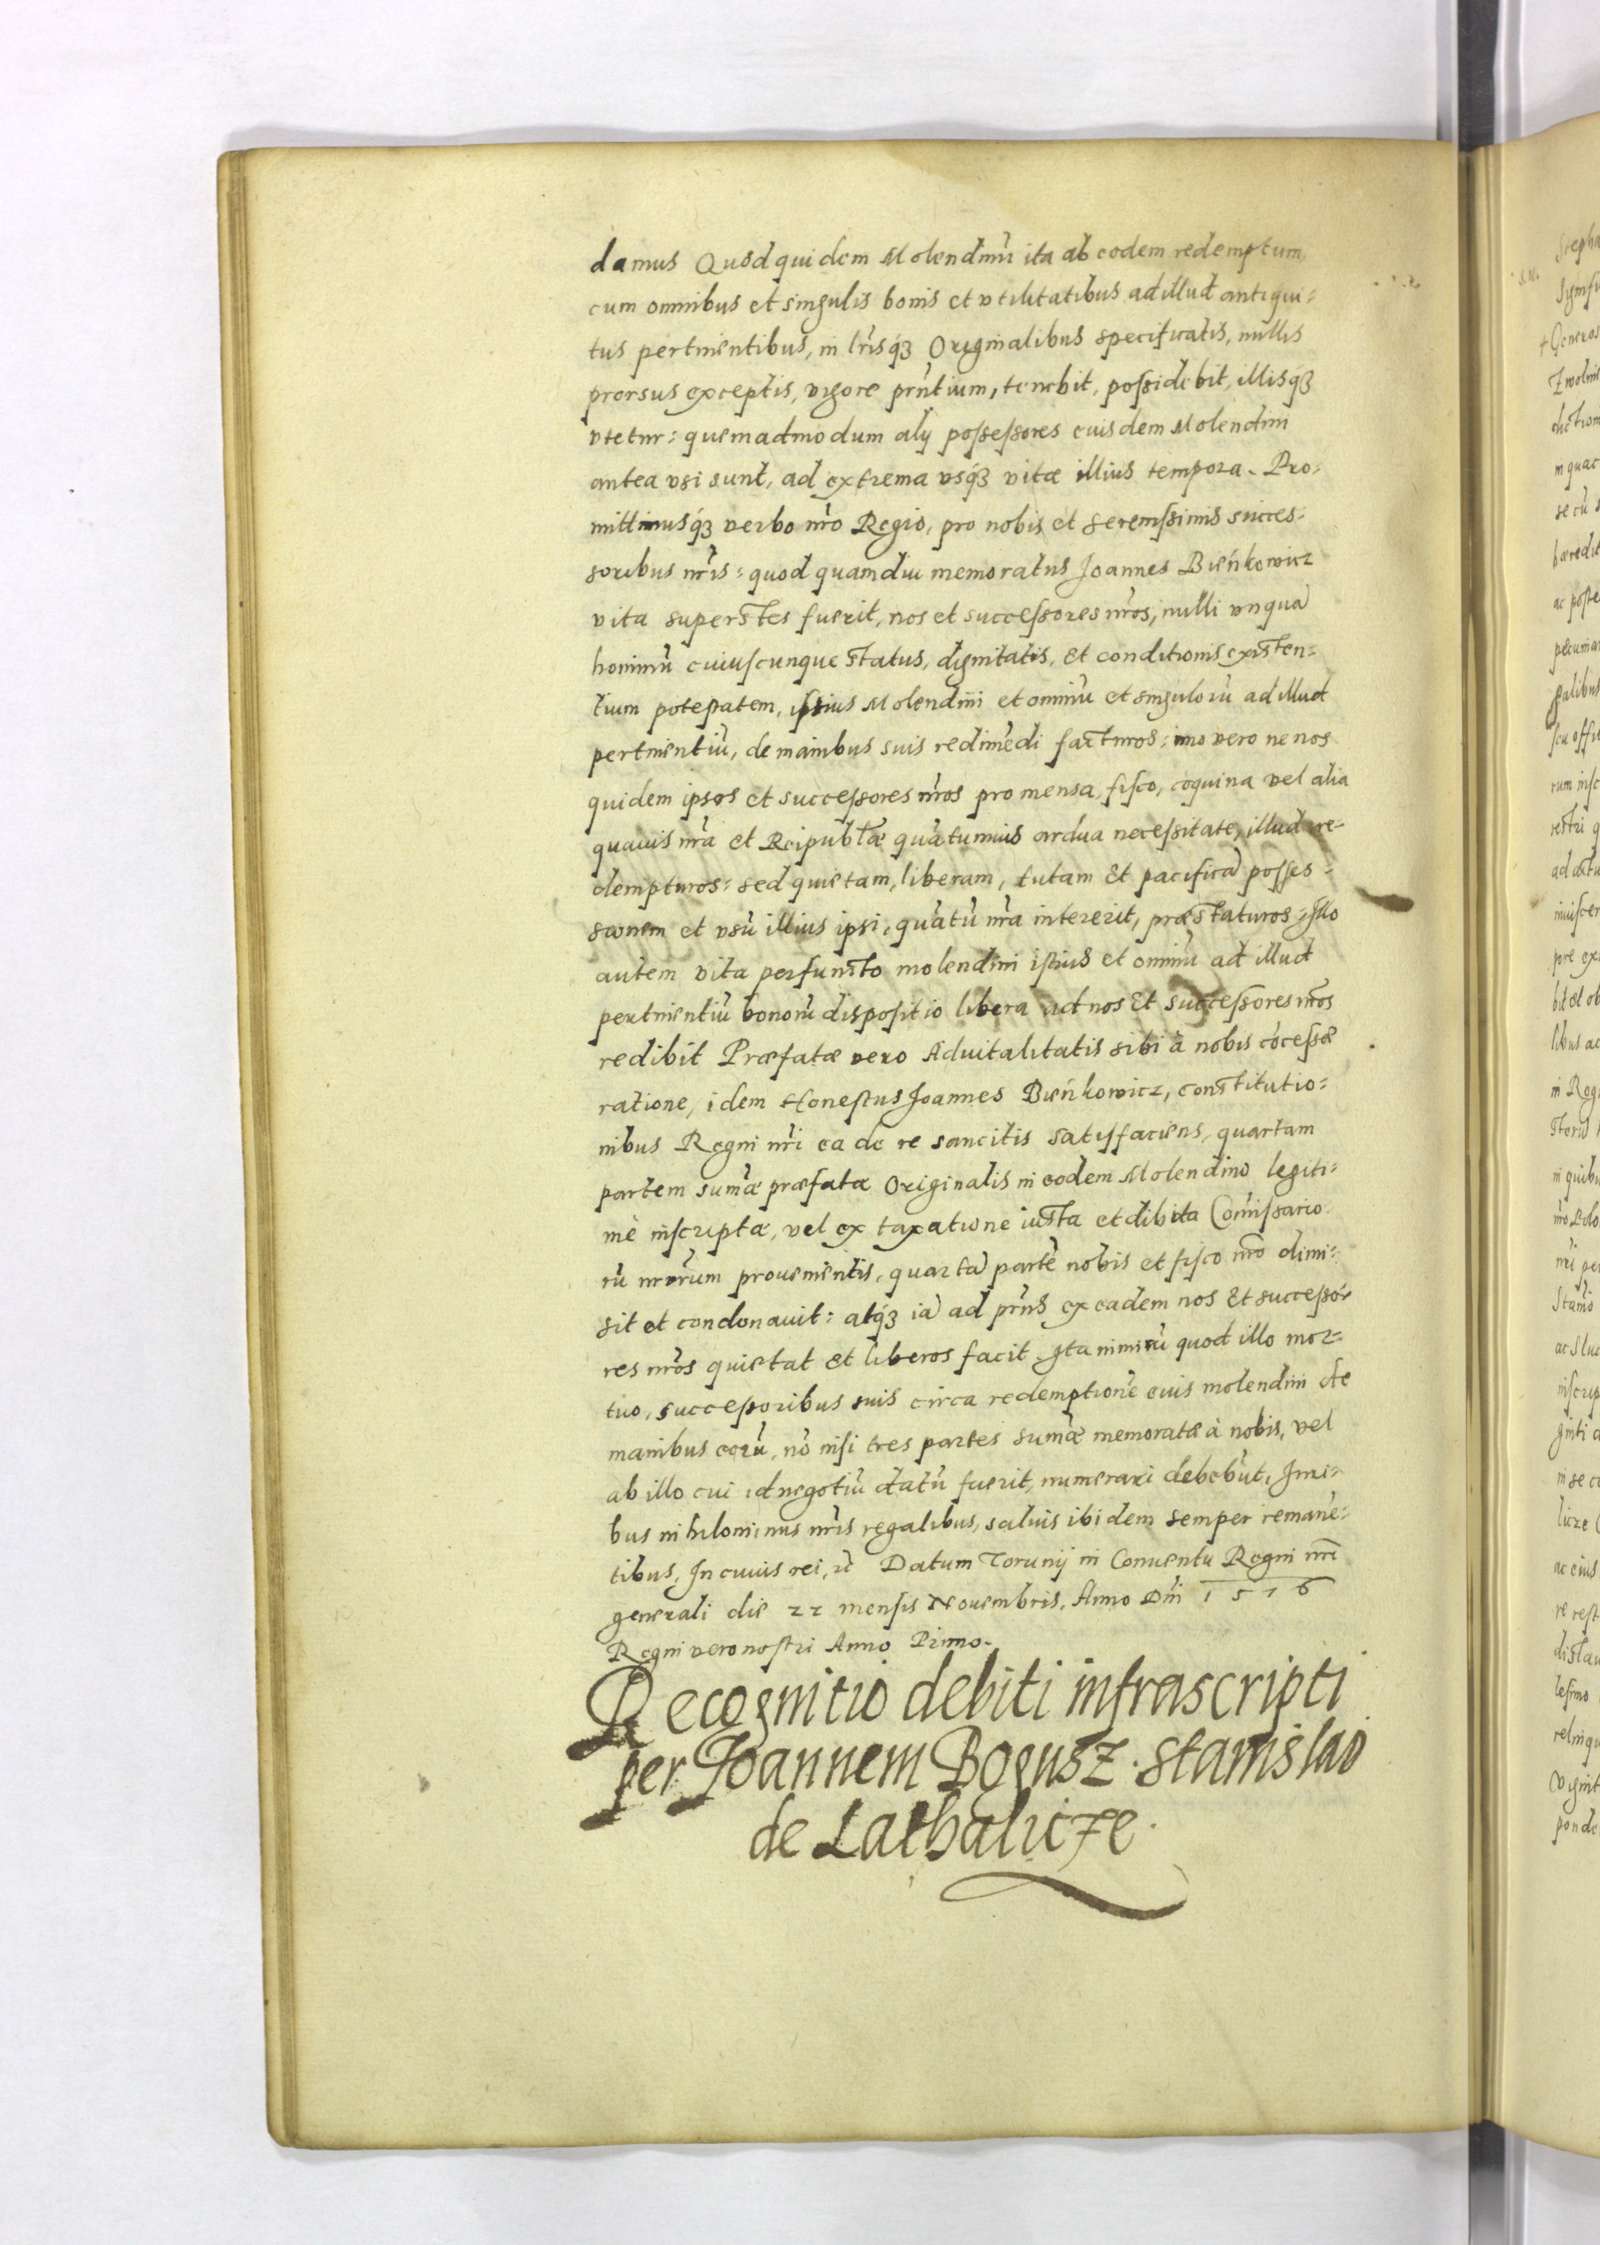 damus Quod quidem Molendinū ita ab eodem redemptum,
cum omnibus et singulis bonis et vtilitatibus ad illud antiqui=
tus pertinentibus, in lr̄isq́ꝫ Originalibus specificatis, nullis
prorsus exceptis, vigore pr̄ntium, tenebit, possidebit, illisq́ꝫ
vtetur: quemadmodum alij possessores euisdem Molendini
antea vsi sunt, ad extrema vsq́ꝫ vitæ illius tempora. Pro=
mittimusq́ꝫ verbo nr̄o Regio, pro nobis et serenissimis succes=
soribus nr̄is: quod quamdiu memoratus Joannes Bieńkowicz
vita superstes fuerit, nos et successores nr̄os, nulli vnquā
hominū cuiuscunque status, dignitatis, et conditionis existen=
tium potestatem, ipsius Molendini et omniū et singulorū ad illud
pertinentiū, de manibus suis redimēdi facturos: imo vero ne nos
quidem ipsos et successores nr̄os pro mensa, fisco, coquina vel alia
quauis nr̄a et Reipubl̄æ quātumuis ardua necessitate, illud re-
dempturos: sed quietam, liberam, tutam et pacificā posses=
sionem et vsū illius ipsi, quātū nr̄a intererit, præstaturos. Illo
autem vita perfuncto molendini istius et omniū ad illud
pertinentiū bonorū dispositio libera ad nos et successores nr̄os
redibit Præfatæ vero Aduitalitatis sibi à nobis cōcessæ
ratione, idem Honestus Joannes Bieńkowicz, constitutio=
nibus Regni nr̄i ea de re sancitis satisfaciens, quartam
partem sum̄æ præfatæ Originalis in eodem Molendino legiti=
mè inscriptæ, vel ex taxatione iusta et debita Com̄issario=
rū nr̄orum prouenientis, quartā partē nobis et fisco nr̄o dimi=
sit et condonauit: atq́ꝫ iā ad pr̄ns ex eadem nos et successo=
res nr̄os quietat et liberos facit. Ita nimirū quod illo mor=
tuo, successoribus suis circa redemptionē euis molendini de
manibus eorū, nō nisi tres partes sum̄æ memoratæ à nobis, vel
ab illo cui id negotiū datū fuerit, numerari debebūt. Iuri=
bus nihilominus nr̄is regalibus, saluis ibidem semper remanē=
tibus, In cuius rei, Datum Torunij in Conuentu Regni nr̄i
generali die 22 mensis Nouembris. Anno Dn̄i 1576
Regni vero nostri Anno Primo.
Recognitio debiti infrascripti
per Joannem Bogusz. Stanislao
de Lathalicze.